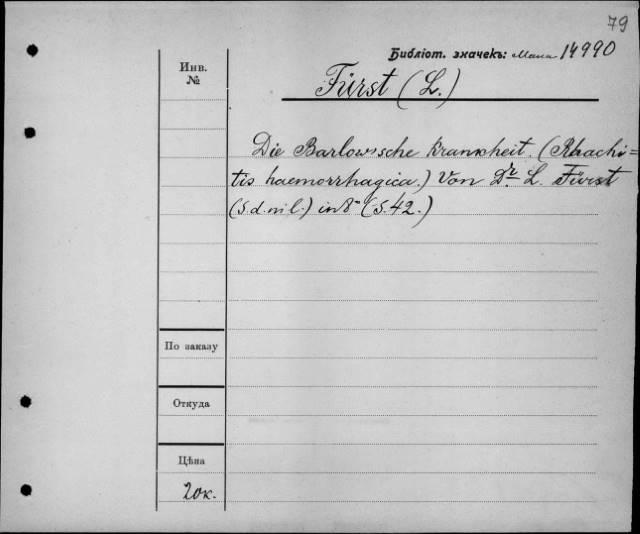 79
Библіот. значекъ: 14990
Инв.
№
Fürst (L.)
Die Barlow'sche Krankheit. (Rhachi=
tis haemorrhagica.) Von Dr. L. Fürst
(S.d.ni l.) in 8° (S. 42.)
По заказу
Откуда
Цѣна
20к.